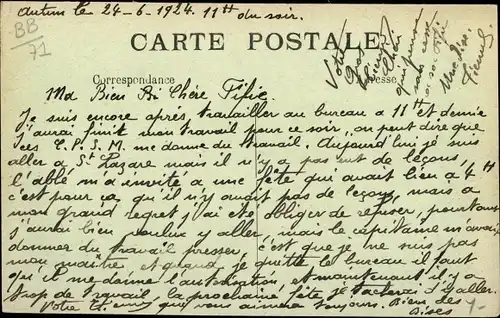 Autun le 24-6-1924. 11H du soir.
BB
71
CARTE POSTALE
Correspondance
Adresse
Ma Bien Chère Fifie
Je suis encore après travailler au bureau a 11H et demie
j'aurai finit mon travail pour ce soir, on peut dire que
ces T.P.S.M. me donne du travail. Aujourd'hui je suis
aller a St Lazare mais il n'y a pas eut de leçons,
l'abbé m'a invité a une fête qui avait lieu a 4H
c'est pour ça qu'il n'y avait pas de leçons, mais a
mon grand regret j'ai été obliger de refuser, pourtant
j'aurai bien voulus y aller, mais le capitaine m'avait
donner du travail presser, c'est que je ne suis pas
mon maître et quand je quitte le bureau il faut
qu'il me donne l'autorisation, et maintenant il y a
trop de travail la prochaine fête je tacherai d'y aller.
Votre Etienne que vous aimera toujours. Bien des
Bises
Votre
Gros
qui pense
sans cesse
a sa
Etienne